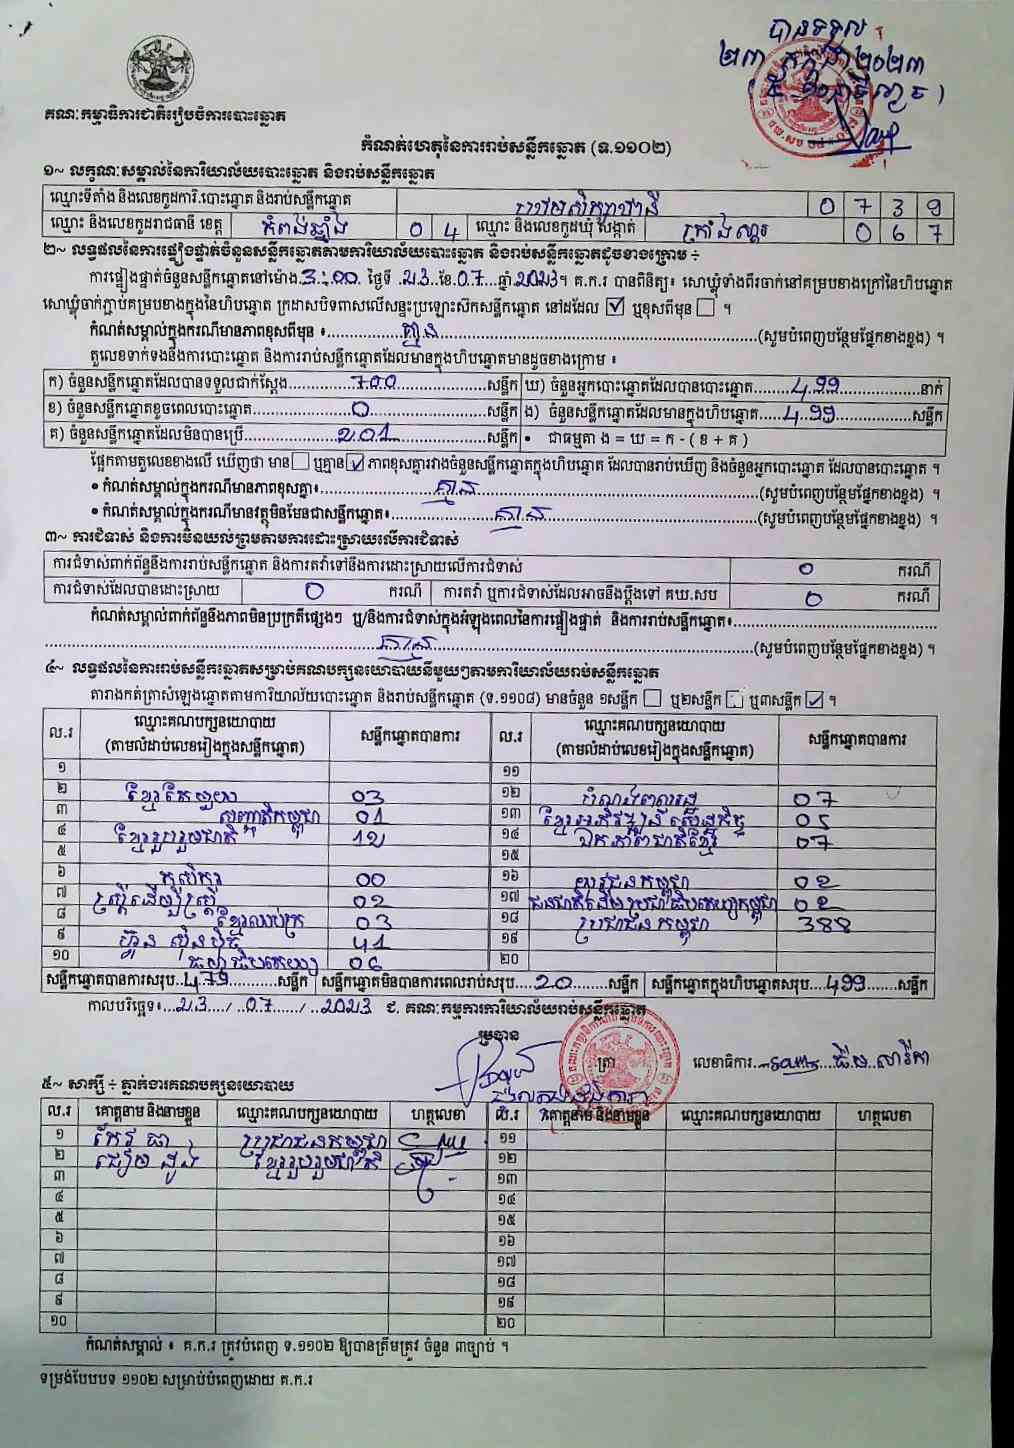 បានទទួល
២៣ កក្កដា ២០២៣
គណៈកម្មាធិការជាតិរៀបចំការបោះឆ្នោត
កំណត់ហេតុនៃការរាប់សន្លឹកឆ្នោត (ទ.១១០២)
១~ លក្ខណៈសម្គាល់នៃការិយាល័យបោះឆ្នោត និងរាប់សន្លឹកឆ្នោត
ឈ្មោះទីតាំង និងលេខកូដការិ.បោះឆ្នោត និងរាប់សន្លឹកឆ្នោត 0 7 3 9
ឈ្មោះ និងលេខកូដរាជធានី ខេត្ត កំពង់ឆ្នាំង 0 4 ឈ្មោះ និងលេខកូដឃុំ សង្កាត់ ក្រាំងល្វា 0 6 7
២~ លទ្ធផលនៃការផ្ទៀងផ្ទាត់ចំនួនសន្លឹកឆ្នោតតាមការិយាល័យបោះឆ្នោត និងរាប់សន្លឹកឆ្នោតដូចខាងក្រោម ÷
ការផ្ទៀងផ្ទាត់ចំនួនសន្លឹកឆ្នោតនៅម៉ោង.3:00. ថ្ងៃទី .23.ខែ.07....ឆ្នាំ.2023។ គ.ក.រ បានពិនិត្យ៖ សោឃ្លុំទាំងពីរចាក់នៅគម្របខាងក្រៅនៃហិបឆ្នោត
សោឃ្លុំចាក់ភ្ជាប់គម្របខាងក្នុងនៃហិបឆ្នោត ក្រដាសបិទពាសលើសន្ទះប្រឡោះស៊កសន្លឹកឆ្នោត នៅដដែល ☑ ឬខុសពីមុន ☐ ។
កំណត់សម្គាល់ក្នុងករណីមានភាពខុសពីមុន ៖ គ្មាន (សូមបំពេញបន្ថែមផ្នែកខាងខ្នង) ។
តួលេខទាក់ទងនឹងការបោះឆ្នោត និងការរាប់សន្លឹកឆ្នោតដែលមានក្នុងហិបឆ្នោតមានដូចខាងក្រោម ៖
ក) ចំនួនសន្លឹកឆ្នោតដែលបានទទួលជាក់ស្តែង 700 សន្លឹក ឃ) ចំនួនអ្នកបោះឆ្នោតដែលបានបោះឆ្នោត 499 នាក់
ខ) ចំនួនសន្លឹកឆ្នោតខូចពេលបោះឆ្នោត 0 សន្លឹក ង) ចំនួនសន្លឹកឆ្នោតដែលមានក្នុងហិបឆ្នោត 499 សន្លឹក
គ) ចំនួនសន្លឹកឆ្នោតដែលមិនបានប្រើ 201 សន្លឹក • ជាធម្មតា ង = ឃ = ក - ( ខ + គ )
ផ្អែកតាមតួលេខខាងលើ ឃើញថា មាន ☐ ឬគ្មាន ☑ ភាពខុសគ្នារវាងចំនួនសន្លឹកឆ្នោតក្នុងហិបឆ្នោត ដែលបានរាប់ឃើញ និងចំនួនអ្នកបោះឆ្នោត ដែលបានបោះឆ្នោត ។
• កំណត់សម្គាល់ក្នុងករណីមានភាពខុសគ្នា៖ គ្មាន (សូមបំពេញបន្ថែមផ្នែកខាងខ្នង) ។
• កំណត់សម្គាល់ក្នុងករណីមានវត្ថុមិនមែនជាសន្លឹកឆ្នោត៖ គ្មាន (សូមបំពេញបន្ថែមផ្នែកខាងខ្នង) ។
៣~ ការជំទាស់ និងការមិនយល់ព្រមតាមការដោះស្រាយលើការជំទាស់
ការជំទាស់ពាក់ព័ន្ធនឹងការរាប់សន្លឹកឆ្នោត និងការតវ៉ាទៅនឹងការដោះស្រាយលើការជំទាស់ 0 ករណី
ការជំទាស់ដែលបានដោះស្រាយ 0 ករណី ការតវ៉ា ឬការជំទាស់ដែលអាចនឹងប្តឹងទៅ គឃ.សប 0 ករណី
កំណត់សម្គាល់ពាក់ព័ន្ធនឹងភាពមិនប្រក្រតីផ្សេងៗ ឬ/និងការជំទាស់ក្នុងអំឡុងពេលនៃការផ្ទៀងផ្ទាត់ និងការរាប់សន្លឹកឆ្នោត៖
គ្មាន (សូមបំពេញបន្ថែមផ្នែកខាងខ្នង) ។
៤~ លទ្ធផលនៃការរាប់សន្លឹកឆ្នោតសម្រាប់គណបក្សនយោបាយនីមួយៗតាមការិយាល័យរាប់សន្លឹកឆ្នោត
តារាងកត់ត្រាសំឡេងឆ្នោតតាមការិយាល័យបោះឆ្នោត និងរាប់សន្លឹកឆ្នោត (ទ.១១០៨) មានចំនួន ១សន្លឹក ☐ ឬ២សន្លឹក ☐ ឬ៣សន្លឹក ☑ ។
ល.រ ឈ្មោះគណបក្សនយោបាយ (តាមលំដាប់លេខរៀងក្នុងសន្លឹកឆ្នោត) សន្លឹកឆ្នោតបានការ ល.រ ឈ្មោះគណបក្សនយោបាយ (តាមលំដាប់លេខរៀងក្នុងសន្លឹកឆ្នោត) សន្លឹកឆ្នោតបានការ
១ ១១
២ ខ្មែរតែមួយ 03 ១២ 07
៣ សញ្ជាតិកម្ពុជា 01 ១៣ ខ្មែរអភិវឌ្ឍន៍សេដ្ឋកិច្ច 05
៤ ខ្មែររួបរួមជាតិ 12 ១៤ ឯកភាពជាតិខ្មែរ 07
៥ ១៥
៦ កសិករ 00 ១៦ យុវជនកម្ពុជា 02
៧ ស្ត្រីដើម្បីស្ត្រី 02 ១៧ ជនជាតិដើមប្រជាធិបតេយ្យកម្ពុជា 02
៨ ខ្មែរឈប់ក្រ 03 ១៨ ប្រជាជនកម្ពុជា 388
៩ ហ៊្វុនស៊ិនប៉ិច 41 ១៩
១០ 06 ២០
សន្លឹកឆ្នោតបានការសរុប 479 សន្លឹក សន្លឹកឆ្នោតមិនបានការពេលរាប់សរុប 20 សន្លឹក សន្លឹកឆ្នោតក្នុងហិបឆ្នោតសរុប 499 សន្លឹក
កាលបរិច្ឆេទ៖ 23 / 07 / 2023 ជ. គណៈកម្មការការិយាល័យរាប់សន្លឹកឆ្នោត
ប្រធាន
ត្រា លេខាធិការ
៥~ សាក្សី ÷ ភ្នាក់ងារគណបក្សនយោបាយ
ល.រ គោត្តនាម និងនាមខ្លួន ឈ្មោះគណបក្សនយោបាយ ហត្ថលេខា ល.រ គោត្តនាម និងនាមខ្លួន ឈ្មោះគណបក្សនយោបាយ ហត្ថលេខា
១ កែវ ធា ប្រជាជនកម្ពុជា ១១
២ ខ្មែររួបរួមជាតិ ១២
៣ ១៣
៤ ១៤
៥ ១៥
៦ ១៦
៧ ១៧
៨ ១៨
៩ ១៩
១០ ២០
កំណត់សម្គាល់ ៖ គ.ក.រ ត្រូវបំពេញ ទ.១១០២ ឱ្យបានត្រឹមត្រូវ ចំនួន ៣ច្បាប់ ។
ទម្រង់បែបបទ ១១០២ សម្រាប់បំពេញដោយ គ.ក.រ